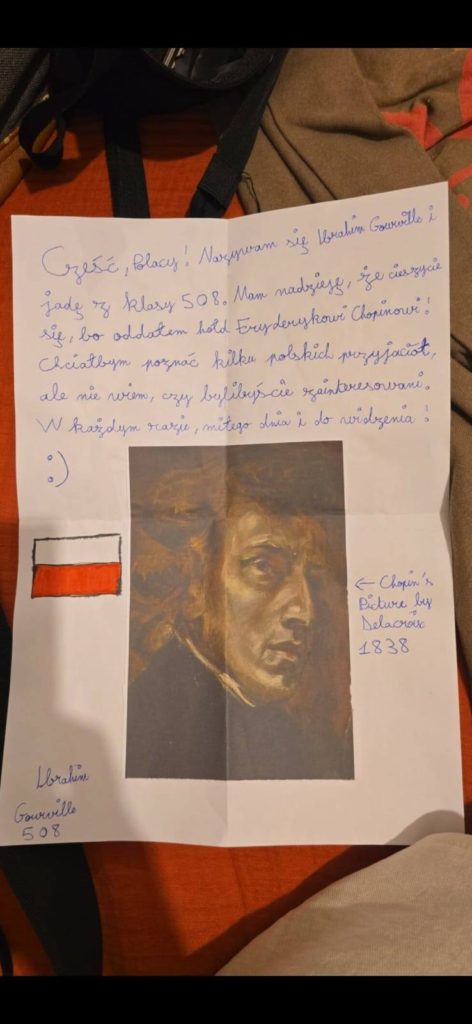 Cześć, Polacy! Nazywam się Ibrahim Gourville i
jadę z klasy 508. Mam nadzieję, że cieszycie
się, bo oddałem hołd Fryderykowi Chopinowi!
Chciałbym poznać kilku polskich przyjaciół,
ale nie wiem, czy bylibyście zainteresowani.
W każdym razie, miłego dnia i do widzenia!
:)
← Chopin's
Picture by
Delacroix
1838
Ibrahim
Gourville
508